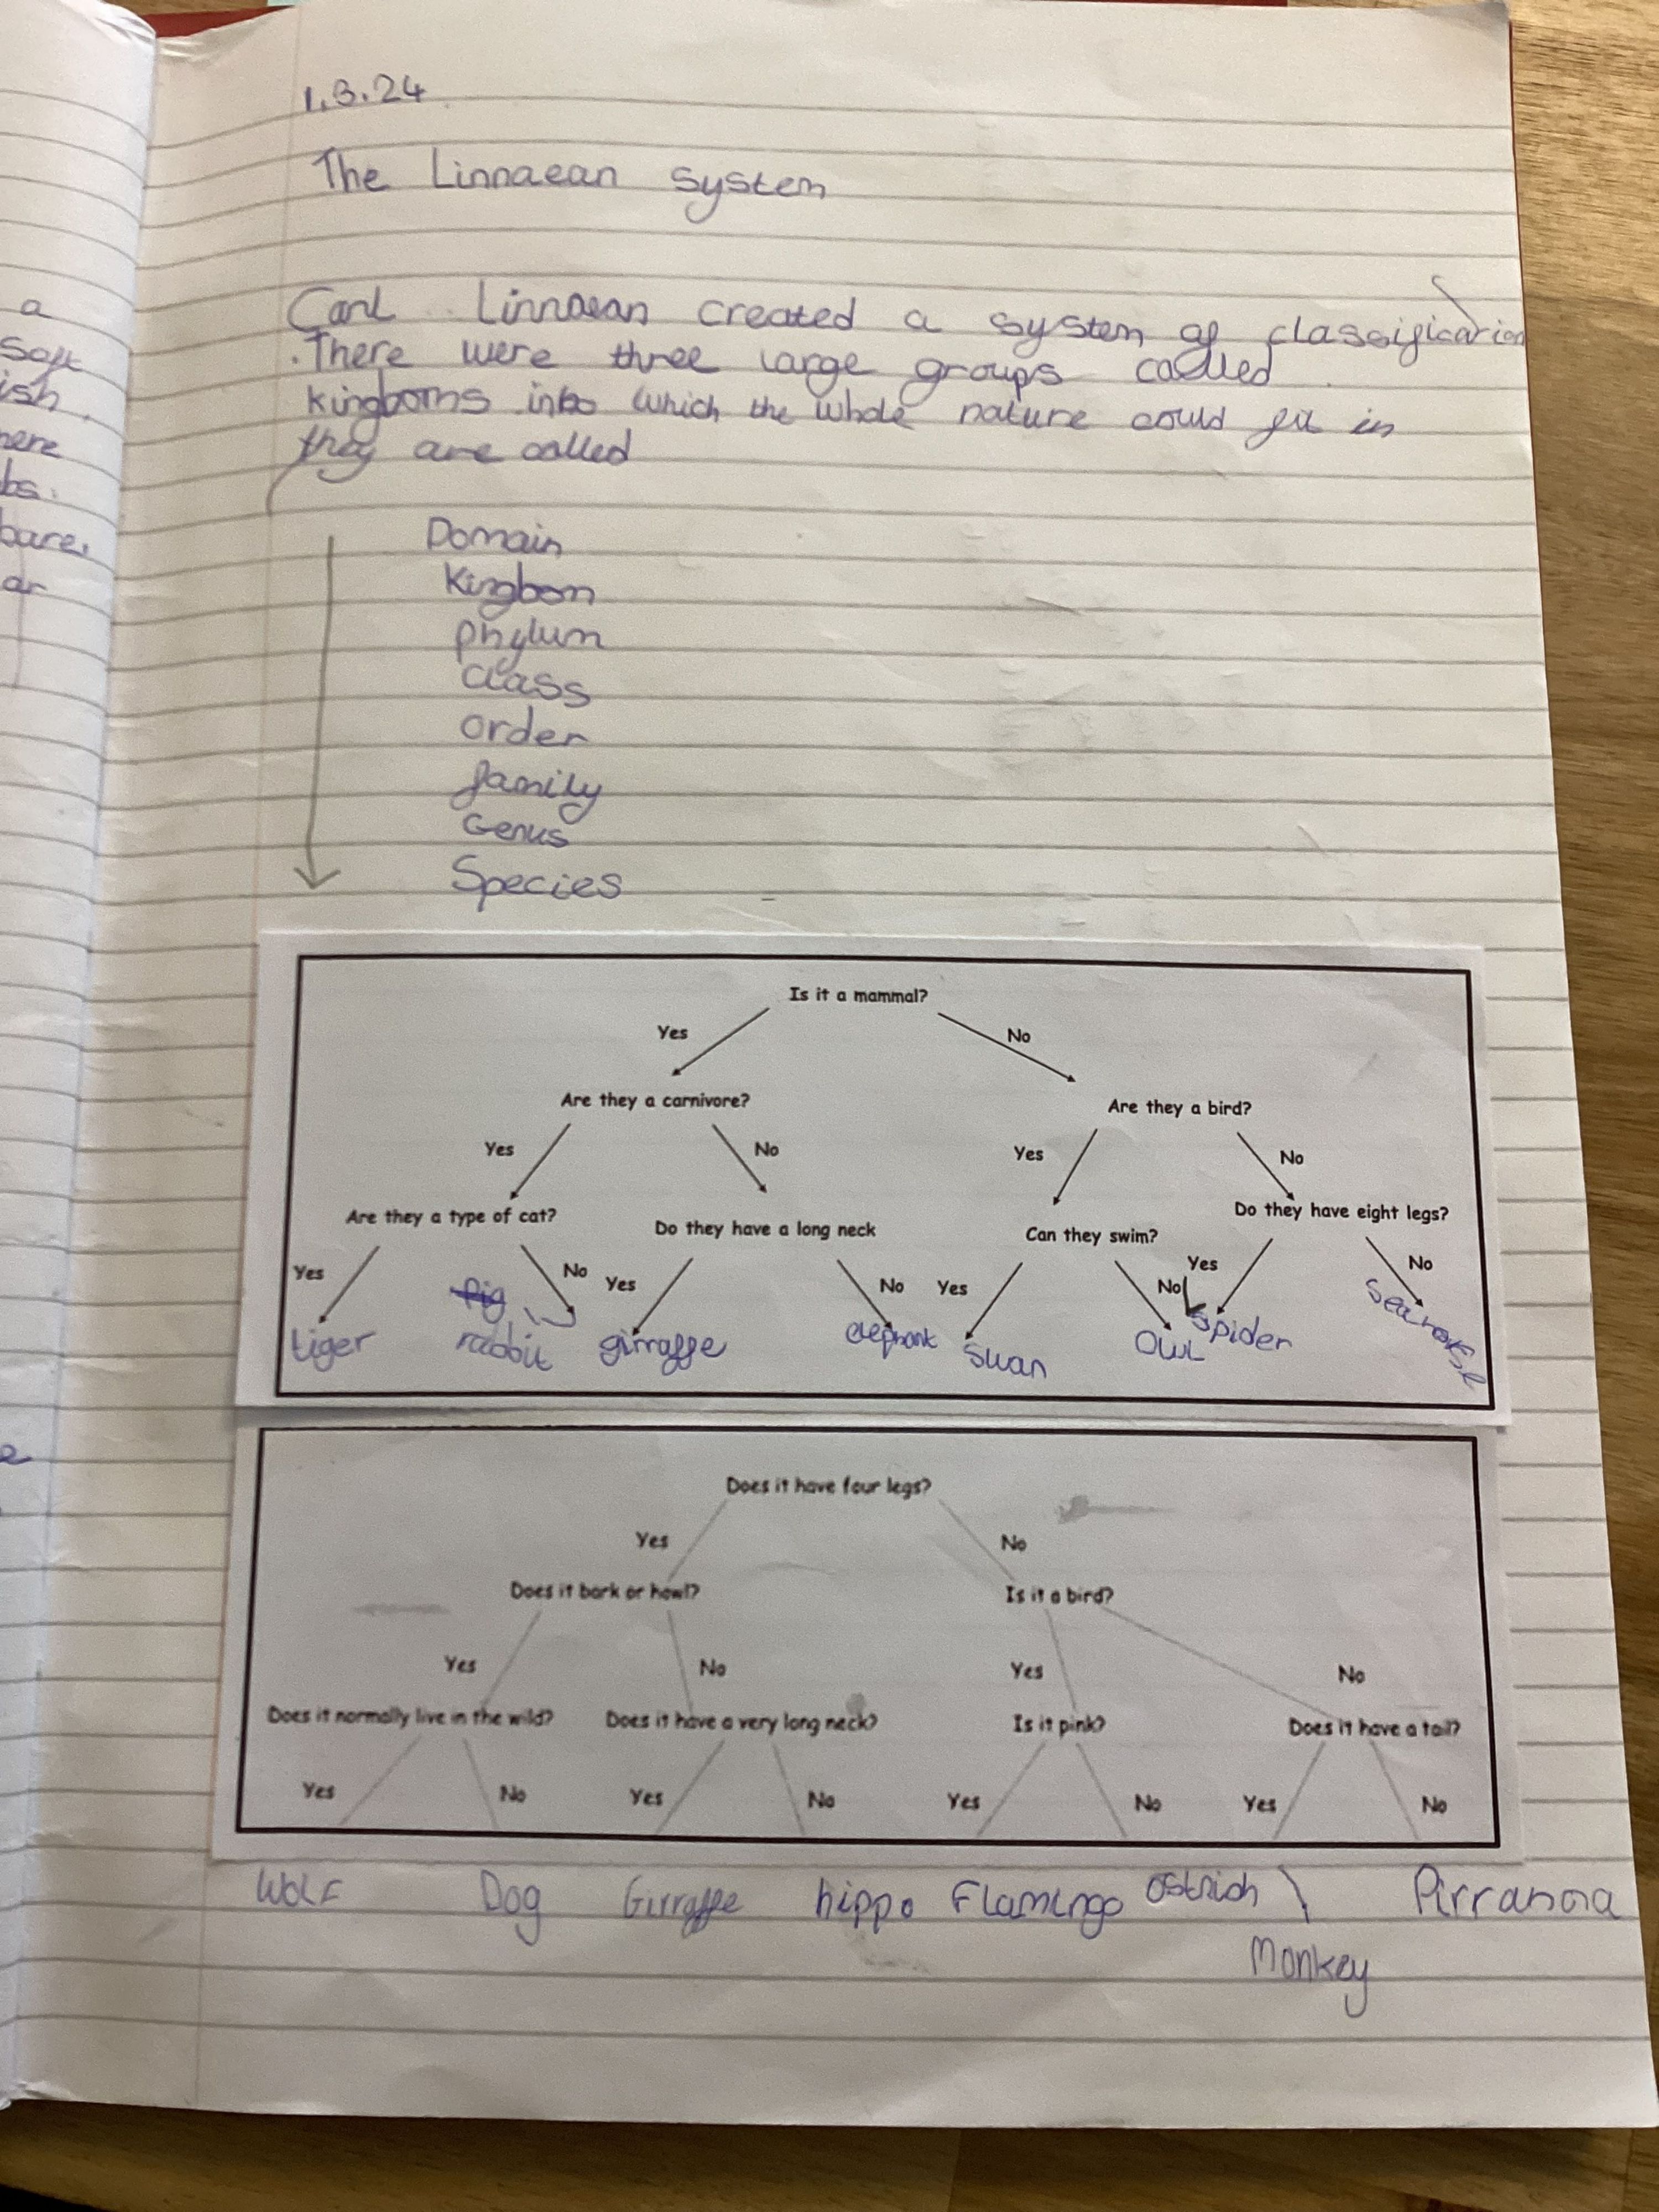 a
soft
ish.
here
bs.
bare.
ar
1.3.24
The Linnaean system
Carl Linnaean created a system of classification
.There were three large groups called
kingboms into which the whole nature could fit in
they are called
Domain
Kingbom
phylum
class
order
family
Genus
Species
Is it a mammal?
Yes No
Are they a carnivore? Are they a bird?
Yes No Yes No
Are they a type of cat? Do they have a long neck Can they swim? Do they have eight legs?
Yes No Yes No Yes No Yes No
pig
tiger rabbit girraffe elephant Swan Owl Spider
Does it have four legs?
Yes No
Does it bark or howl? Is it a bird?
Yes No Yes No
Does it normally live in the wild? Does it have a very long neck? Is it pink? Does it have a tail?
Yes No Yes No Yes No Yes No
Wolf Dog Girraffe hippo Flamingo ostrich Pirranaia
Monkey